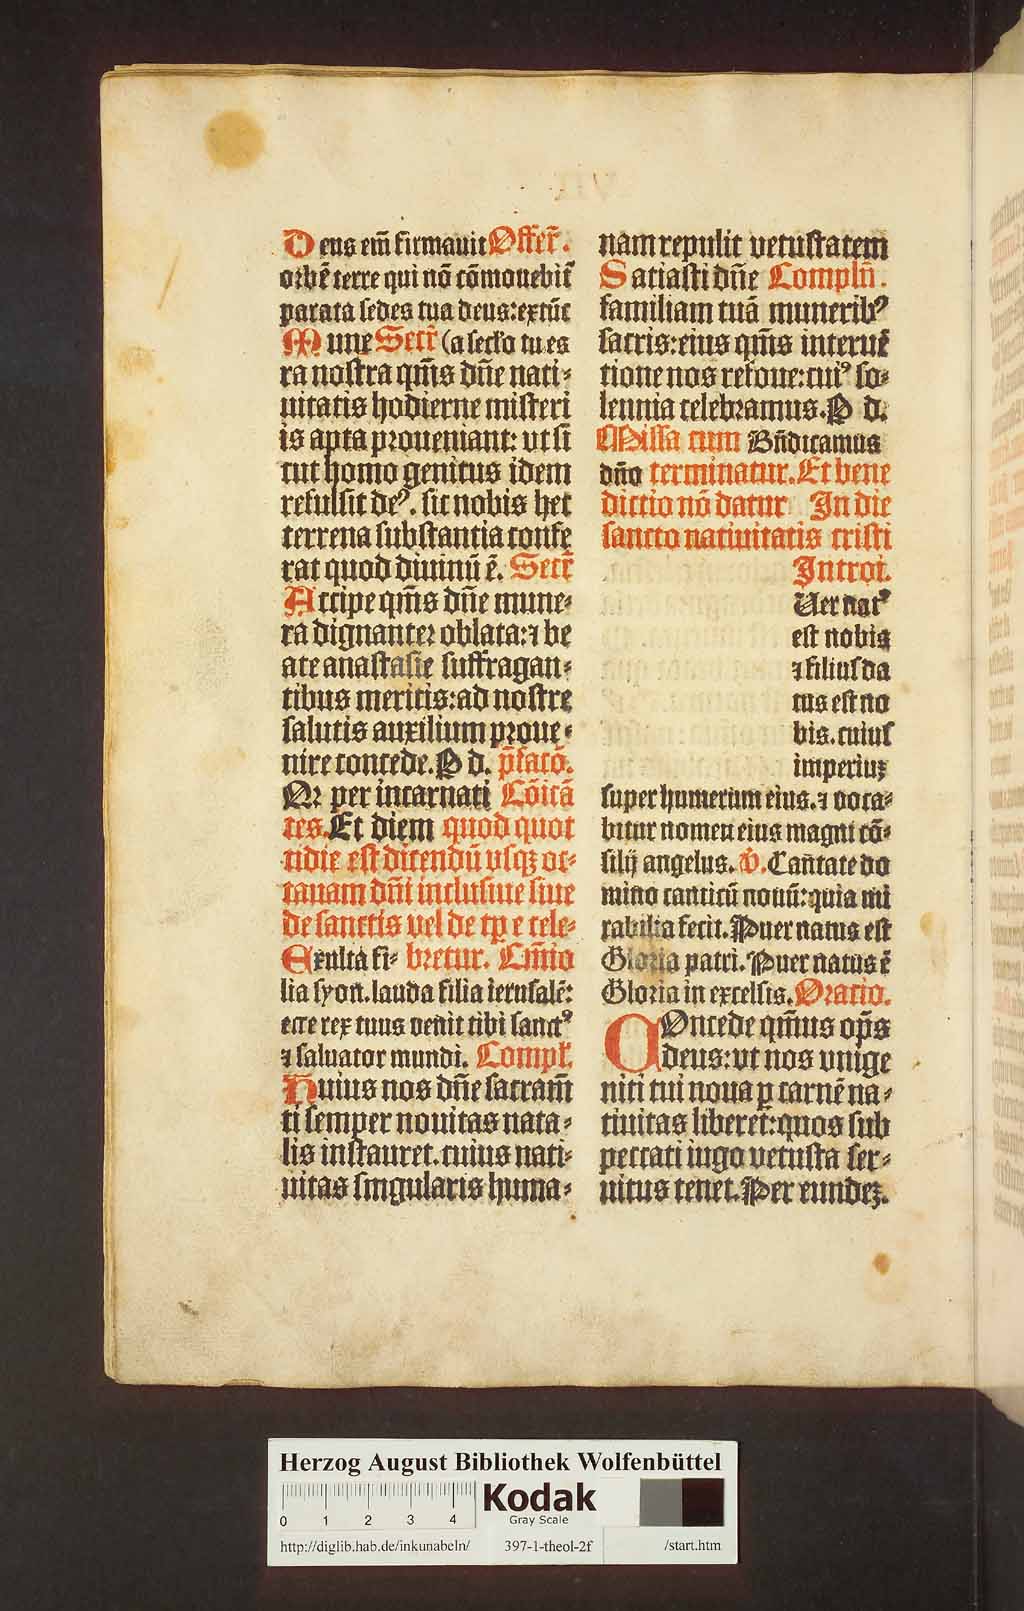 Deus em̄ firmauit Offer̄.
orbē terre qui nō cōmouebit᷑
parata sedes tua deus: ex tūc
Mune Secr̄ (a sec̄lo tu es
ra nostra qm̄s dn̄e nati⸗
uitatis hodierne misteri
is apta proueniant: vt si
cut homo genitus idem
refulsit deꝰ. sic nobis hec
terrena substantia confe
rat quod diuinū ē. Secr̄
Accipe qm̄s dn̄e mune⸗
ra dignanter oblata: ⁊ be
ate anastasie suffragan⸗
tibus meritis: ad nostre
salutis auxilium proue⸗
nire concede. P d. p̄facō.
Qr per incarnati Cōica
tes. Et diem quod quot
tidie est dicendū vsqꝫ oc⸗
tauam dn̄i inclusiue siue
de sanctis vel de tꝑe cele⸗
Exulta fi⸗ bretur. Cm̄io
lia syon. lauda filia ierusalē:
ecce rex tuus venit tibi sanctꝰ
⁊ saluator mundi. Compl̄.
Huius nos dn̄e sacram̄
ti semper nouitas nata⸗
lis instauret. cuius nati⸗
uitas singularis huma⸗
nam repulit vetustatem
Satiasti dn̄e Compln̄.
familiam tuā muneribꝰ
sacris: eius qm̄s interuē
tione nos refoue: cuiꝰ so⸗
lennia celebramus. P d.
Missa cum Bn̄dicamus
dn̄o terminatur. Et bene
dictio nō datur In die
sancto natiuitatis cristi
Introi.
Uer natꝰ
est nobis
⁊ filius da
tus est no
bis. cuius
imperiuꝫ
super humerum eius. ⁊ voca⸗
bitur nomen eius magni cō⸗
silij angelus. v̄. Can̄tate do
mino canticū nouū: quia mi
rabilia fecit. Puer natus est
Gloria patri. Puer natus ē
Gloria in excelsis. Oratio.
COncede qm̄us op̄s
deus: vt nos vnige
niti tui noua ꝑ carnē na⸗
tiuitas liberet: quos sub
peccati iugo vetusta ser⸗
uitus tenet. Per eundeꝫ.
Herzog August Bibliothek Wolfenbüttel
0 1 2 3 4
Kodak
Gray Scale
http://diglib.hab.de/inkunabeln/ 397-1-theol-2f /start.htm